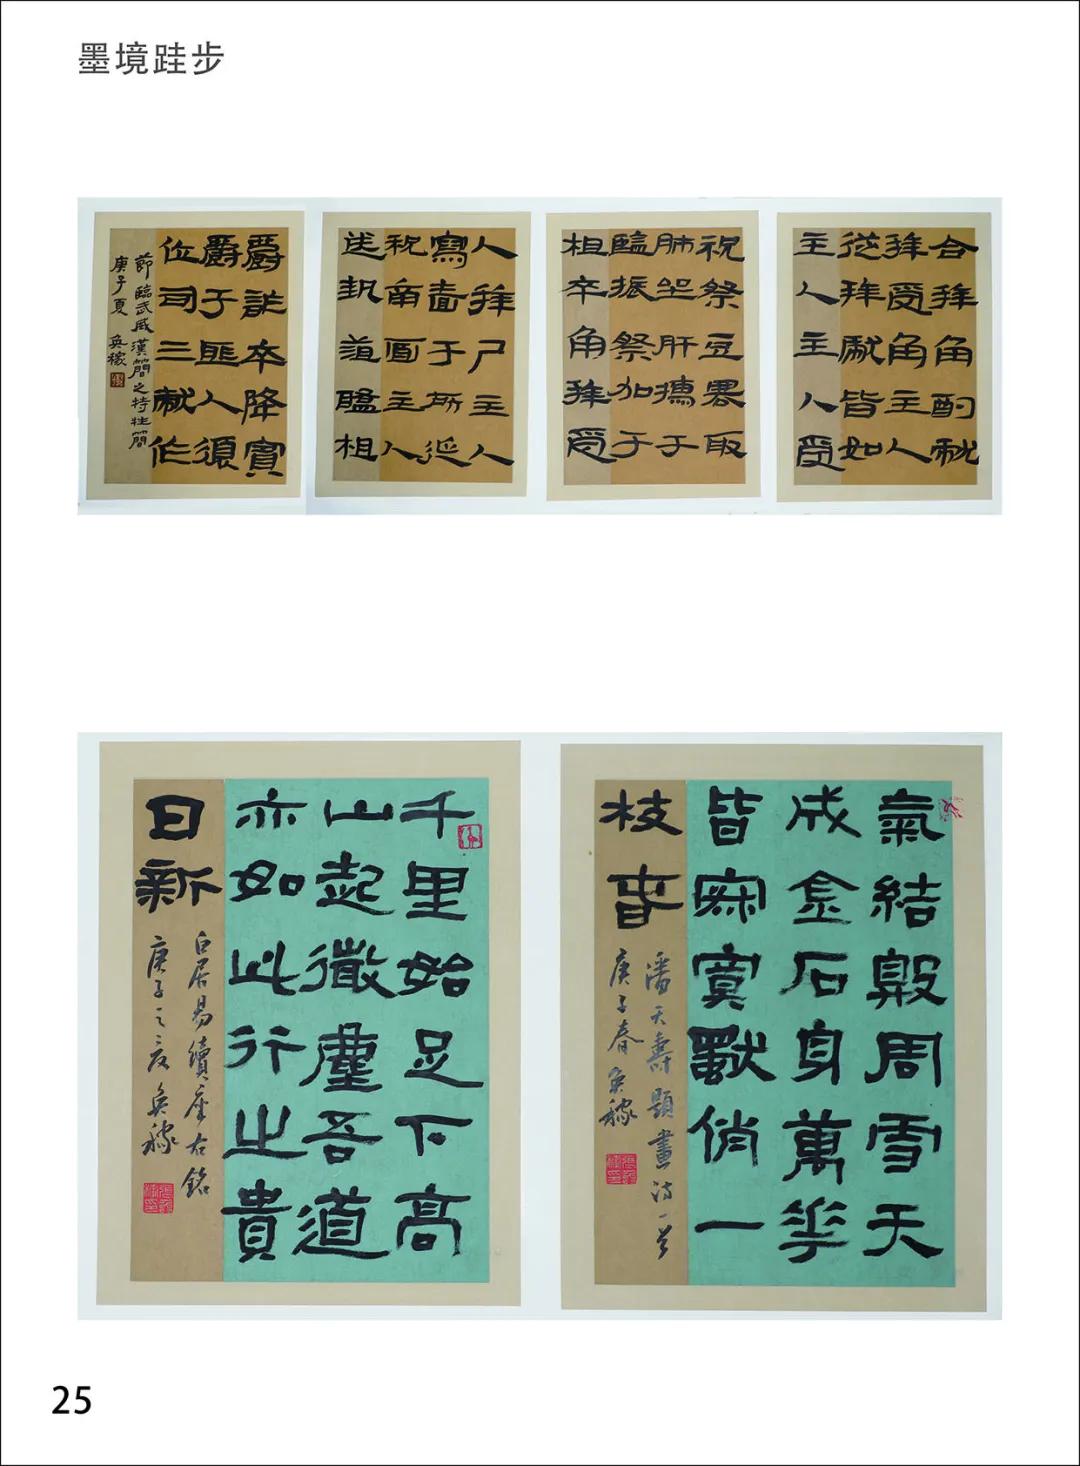 墨境跬步
合拜角酌
拜受角主人
從拜獻皆如
主人主人受
祝祭豆取
肺坐肝擩于
臨振祭加于
柤卒角拜受
人拜尸主人
寫嗇于所延
祝南面主人
送執醢柤
爵詶卒降賓
爵于匪人須
位司三獻作
節臨武威漢簡之特牲簡
庚子夏 奐稼
氣結殷周雪天
成金石身萬花
皆寂寞獨俏一
枝春
潘天壽題畫詩一首
庚子春 奐稼
千里始足下高
山起微塵吾道
亦如此行之貴
日新
白居易續座右銘
庚子之夏 奐稼
25